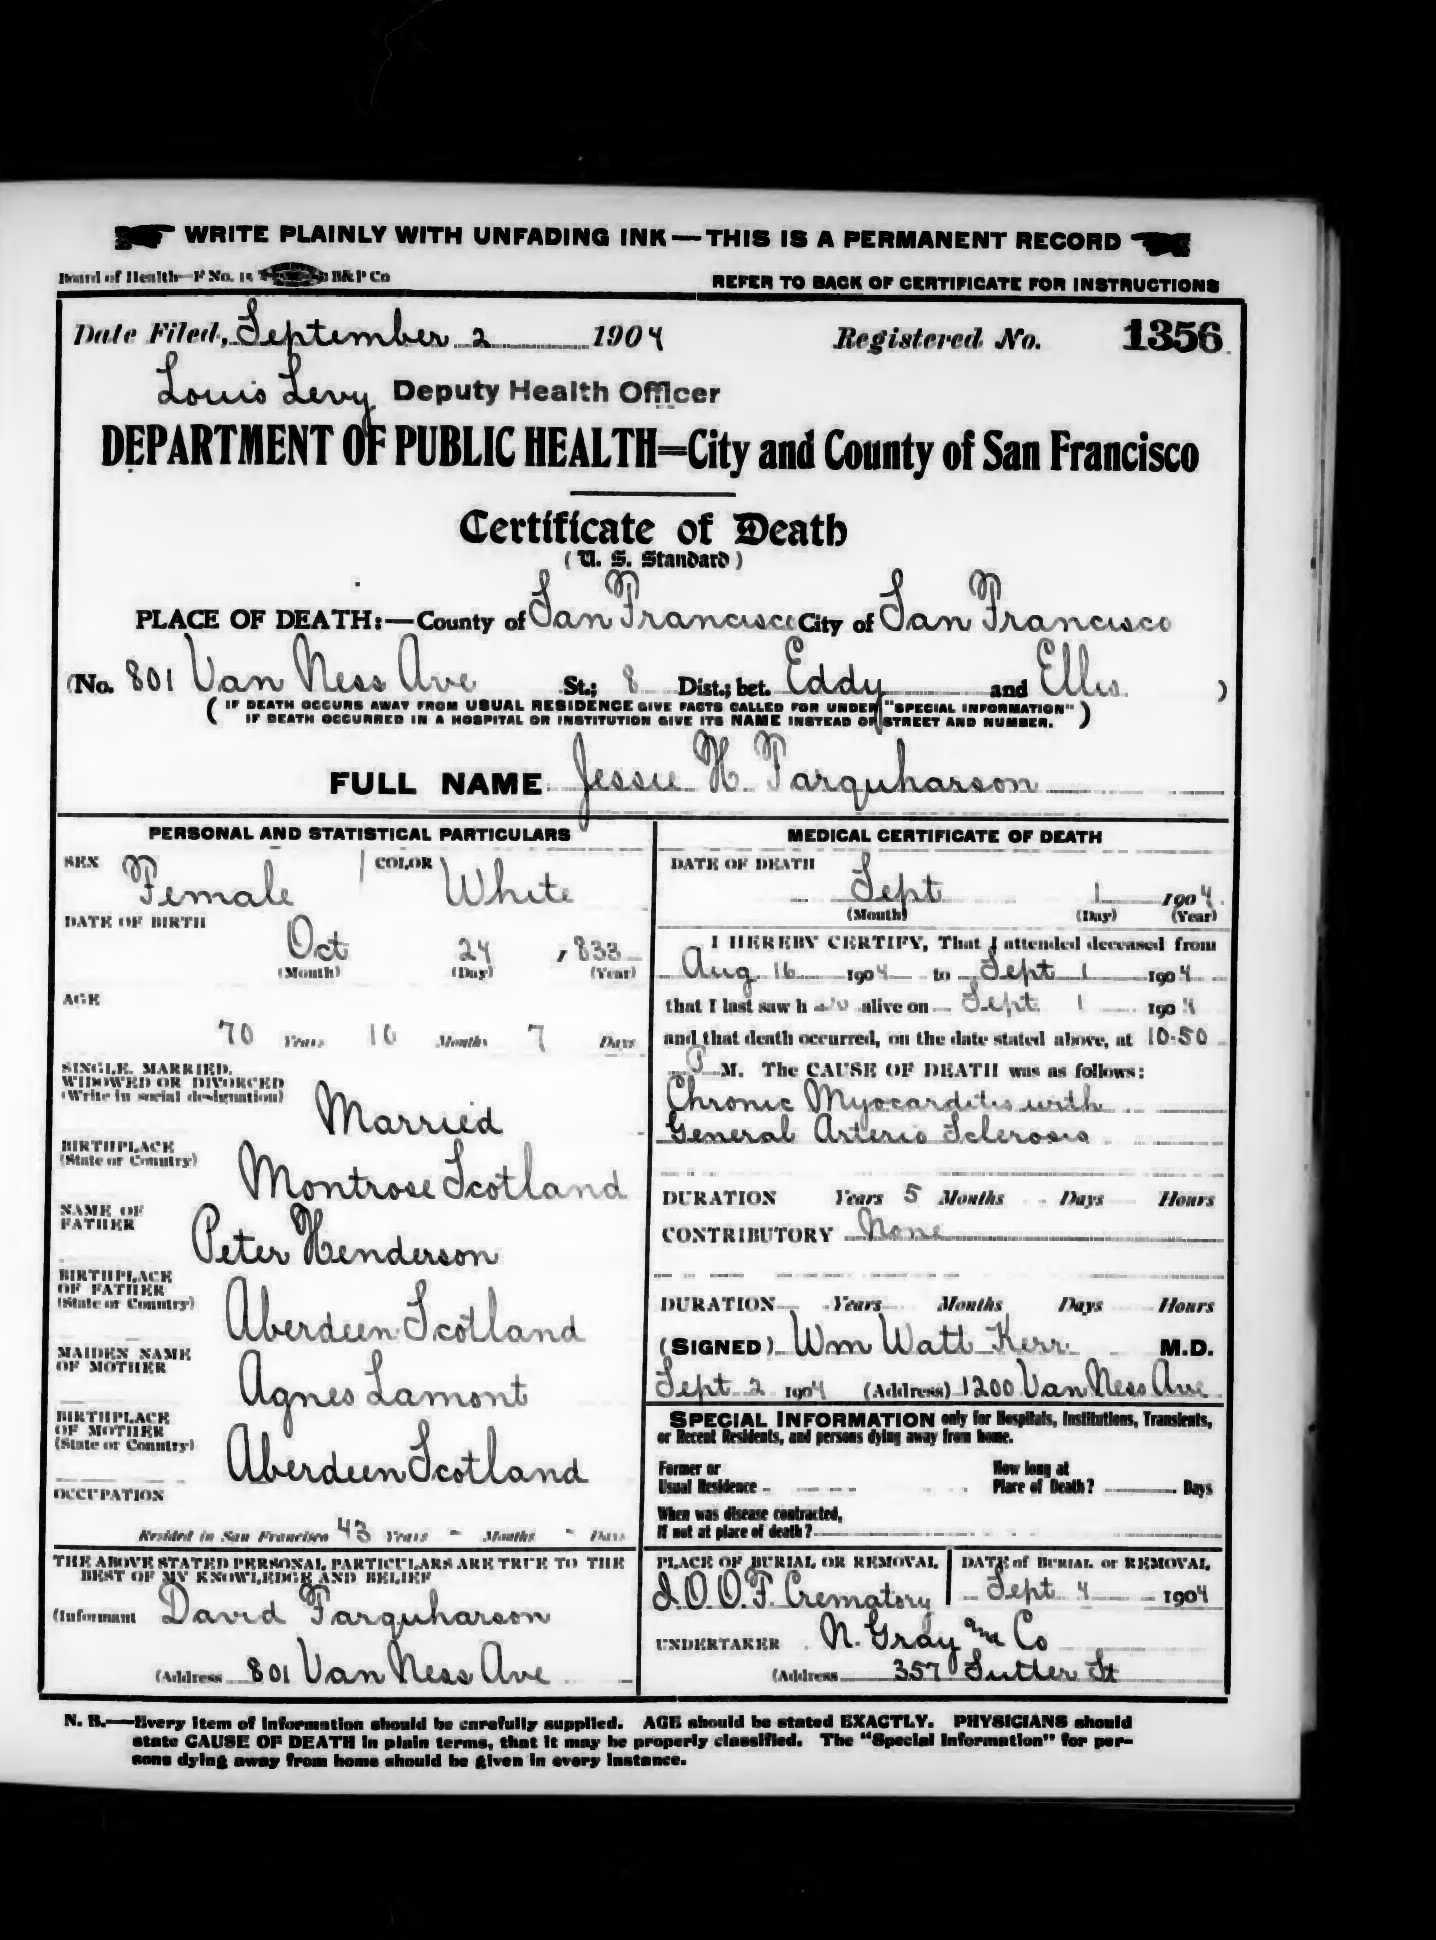 WRITE PLAINLY WITH UNFADING INK—THIS IS A PERMANENT RECORD
Board of Health—F No. 15 B&P Co
REFER TO BACK OF CERTIFICATE FOR INSTRUCTIONS
Date Filed, September 2 1904 Registered No. 1356
Louis Levy Deputy Health Officer
DEPARTMENT OF PUBLIC HEALTH=City and County of San Francisco
Certificate of Death
(U. S. Standard)
PLACE OF DEATH:—County of San Francisco City of San Francisco
(No. 801 Van Ness Ave St.; 8 Dist.; bet. Eddy and Ellis )
( IF DEATH OCCURS AWAY FROM USUAL RESIDENCE GIVE FACTS CALLED FOR UNDER "SPECIAL INFORMATION"
IF DEATH OCCURRED IN A HOSPITAL OR INSTITUTION GIVE ITS NAME INSTEAD OF STREET AND NUMBER. )
FULL NAME Jessie H. Farquharson
PERSONAL AND STATISTICAL PARTICULARS
SEX Female COLOR White
DATE OF BIRTH
Oct 24 , 833
(Month) (Day) (Year)
AGE
70 Years 10 Months 7 Days
SINGLE, MARRIED,
WIDOWED OR DIVORCED
(Write in social designation)
Married
BIRTHPLACE
(State or Country)
Montrose Scotland
NAME OF
FATHER
Peter Henderson
BIRTHPLACE
OF FATHER
(State or Country)
Aberdeen Scotland
MAIDEN NAME
OF MOTHER
Agnes Lamont
BIRTHPLACE
OF MOTHER
(State or Country)
Aberdeen Scotland
OCCUPATION
Resided in San Francisco 43 Years - Months - Days
THE ABOVE STATED PERSONAL PARTICULARS ARE TRUE TO THE
BEST OF MY KNOWLEDGE AND BELIEF
(Informant David Farquharson
(Address 801 Van Ness Ave
MEDICAL CERTIFICATE OF DEATH
DATE OF DEATH
Sept 1 1904
(Month) (Day) (Year)
I HEREBY CERTIFY, That I attended deceased from
Aug 16 1904 to Sept 1 1904
that I last saw h er alive on Sept 1 1904
and that death occurred, on the date stated above, at 10-50
P M. The CAUSE OF DEATH was as follows:
Chronic Myocarditis with
General Arterio Sclerosis
DURATION Years 5 Months - Days Hours
CONTRIBUTORY None
DURATION Years Months Days Hours
(SIGNED) Wm Watt Kerr M.D.
Sept 2 1904 (Address) 1200 Van Ness Ave
SPECIAL INFORMATION only for Hospitals, Institutions, Transients,
or Recent Residents, and persons dying away from home.
Former or
Usual Residence
How long at
Place of Death? Days
When was disease contracted,
If not at place of death?
PLACE OF BURIAL OR REMOVAL
I.O.O.F. Crematory
DATE of BURIAL or REMOVAL
Sept 4 1904
UNDERTAKER N. Gray and Co
(Address 357 Sutter St
N. B.—Every item of information should be carefully supplied. AGE should be stated EXACTLY. PHYSICIANS should
state CAUSE OF DEATH in plain terms, that it may be properly classified. The "Special Information" for per-
sons dying away from home should be given in every instance.